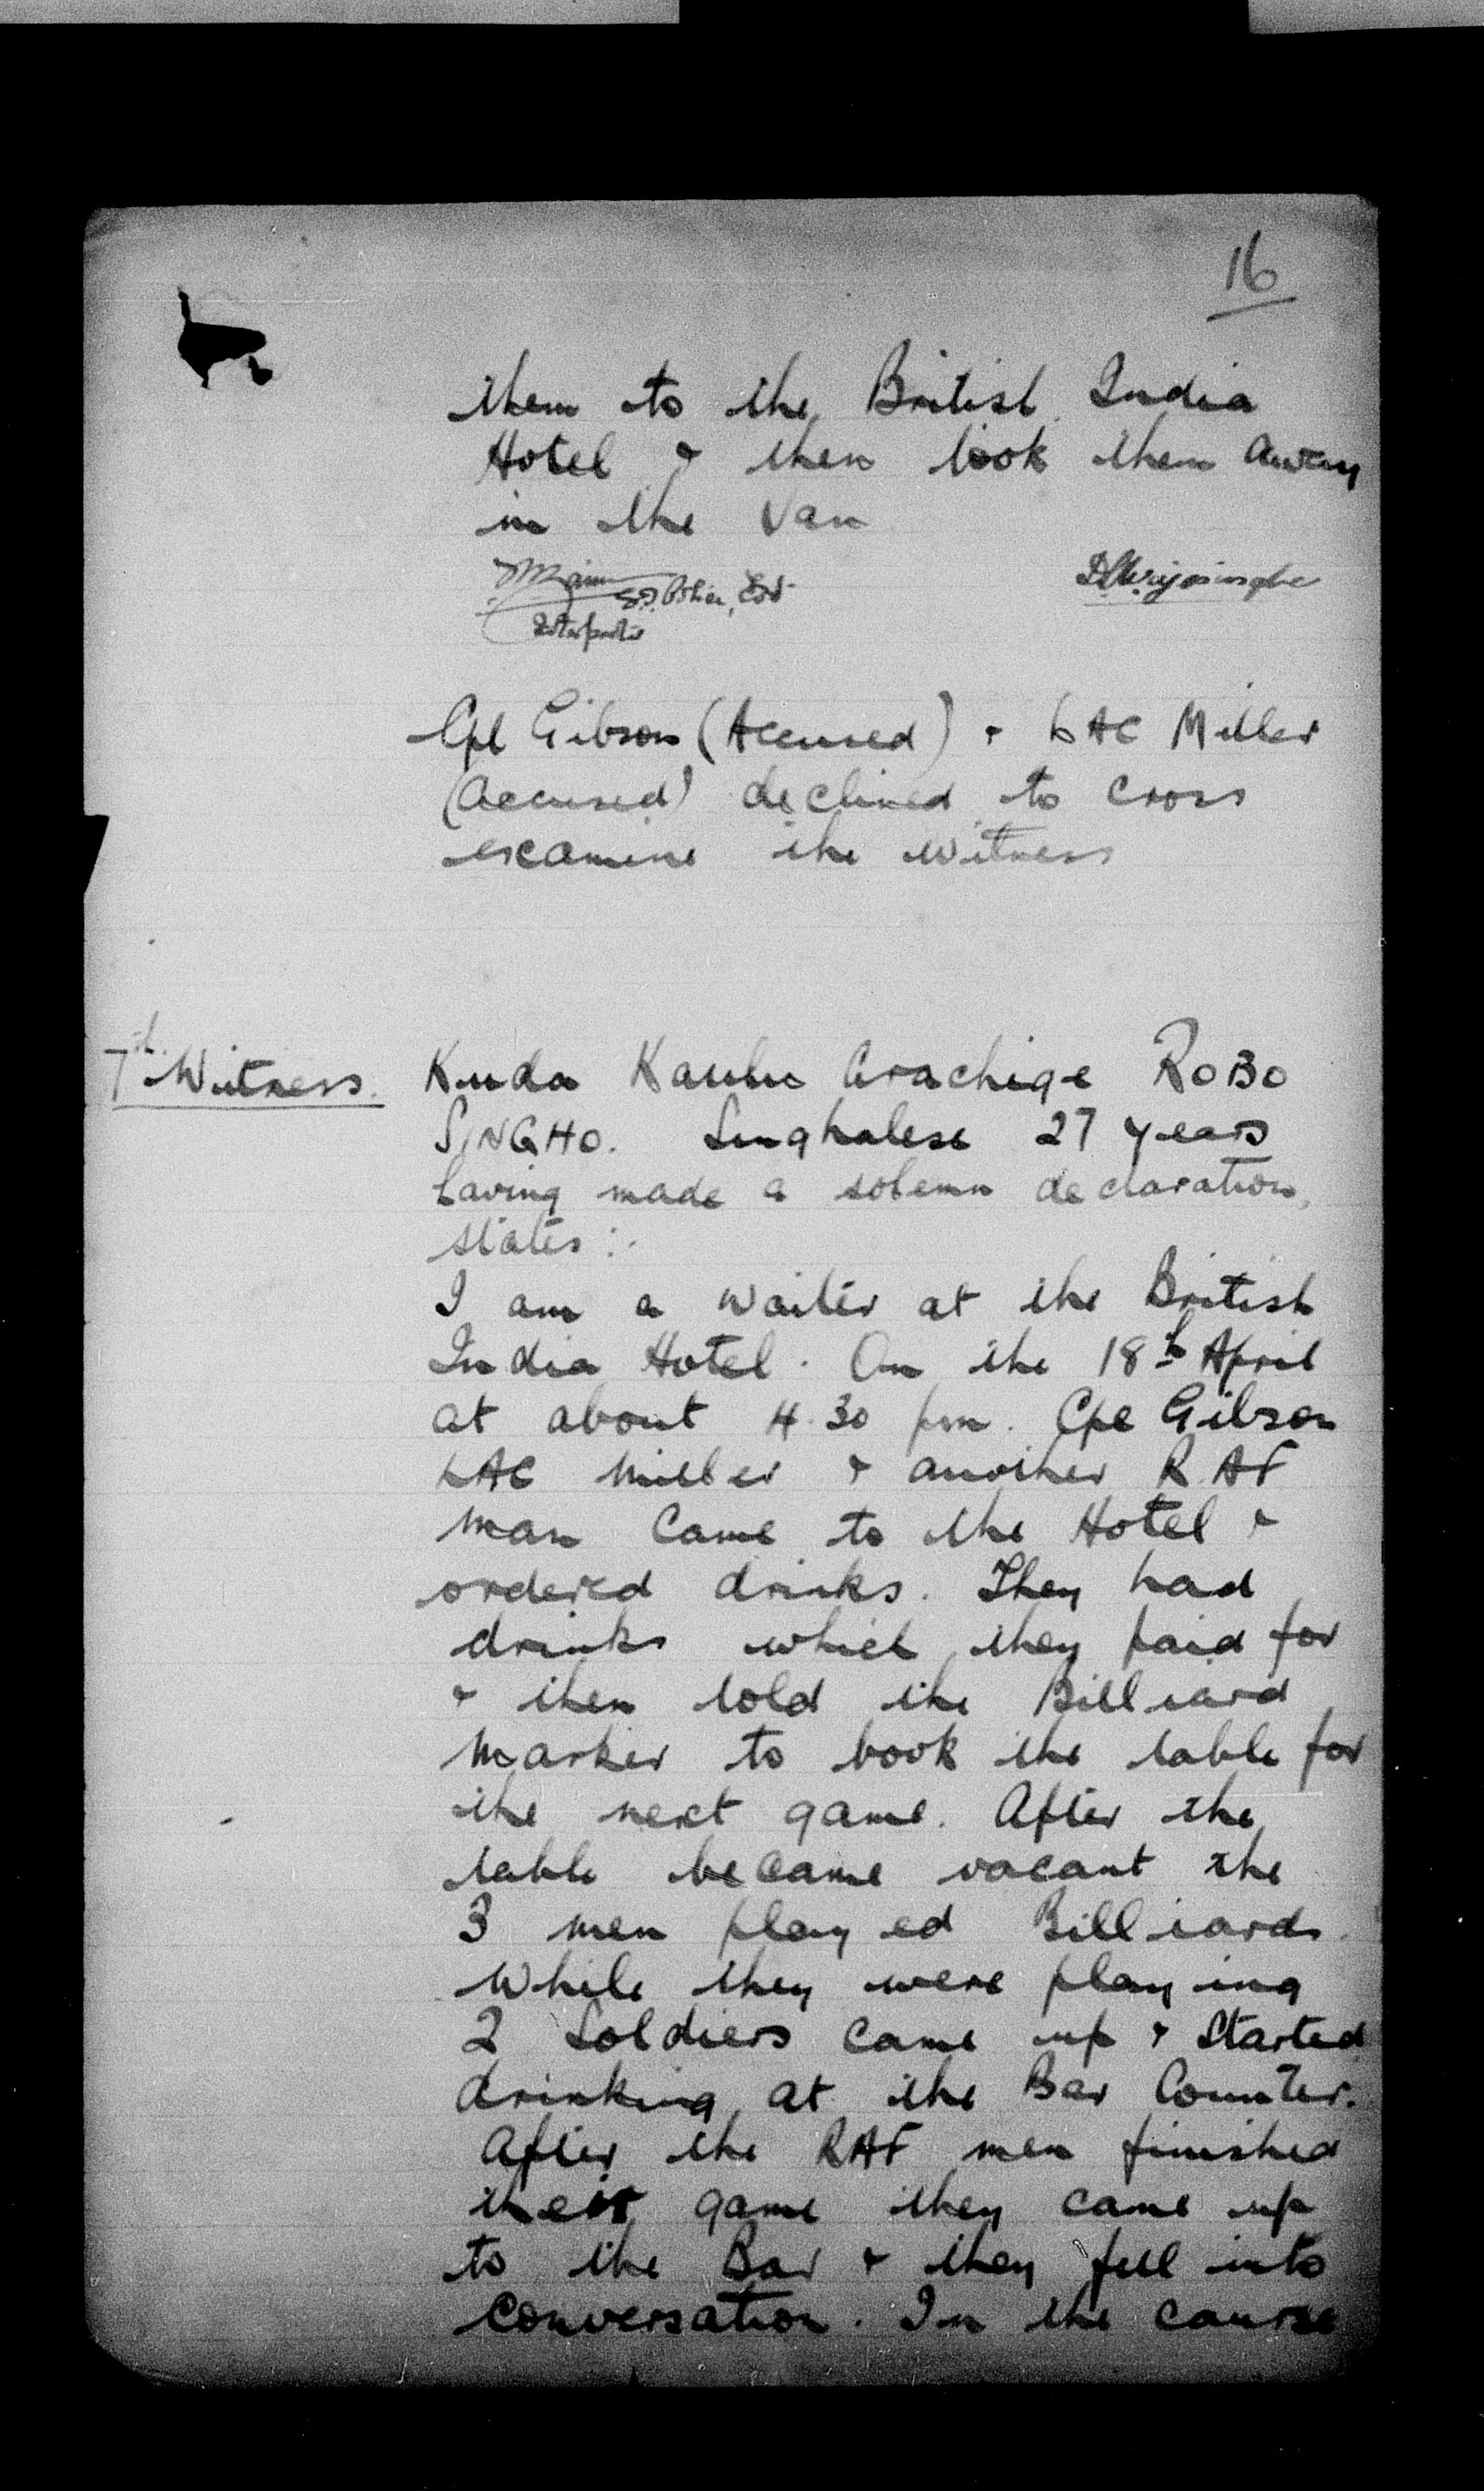 16
them to the British India
Hotel & then took them away
in the Van
D. Wijesinghe
Interpreter
Cpl Gibson (Accused) & LAC Miller
(Accused) declined to cross
examine the witness
7th Witness. Kuda Kankn Arachige ROBO
SINGHO. Singhalese 27 years
having made a solemn declaration,
states :-
I am a waiter at the British
India Hotel. On the 18th April
at about 4.30 pm. Cpl Gibson
LAC Miller & another R.A.F
man came to the Hotel &
ordered drinks. They had
drinks which they paid for
& then told the Billiard
Marker to book the table for
the next game. After the
table became vacant the
3 men played Billiards.
While they were playing
2 Soldiers came up & started
drinking at the Bar Counter.
After the RAF men finished
their game they came up
to the Bar & they fell into
conversation. In the course